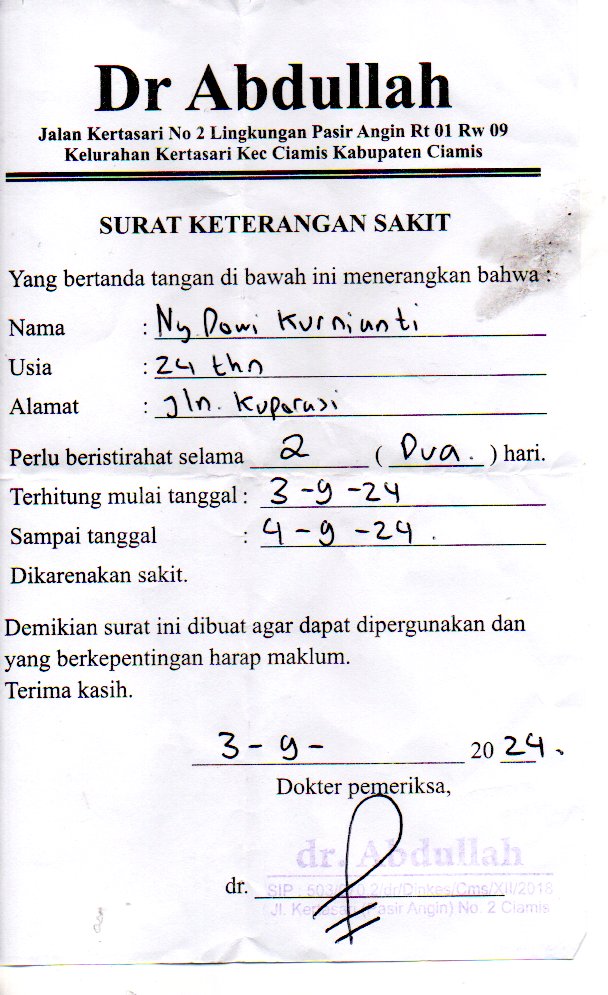 Dr Abdullah
Jalan Kertasari No 2 Lingkungan Pasir Angin Rt 01 Rw 09
Kelurahan Kertasari Kec Ciamis Kabupaten Ciamis
SURAT KETERANGAN SAKIT
Yang bertanda tangan di bawah ini menerangkan bahwa :
Nama : Ny Dewi Kurnianti
Usia : 24 thn
Alamat : Jln. Koperasi
Perlu beristirahat selama 2 ( Dua. ) hari.
Terhitung mulai tanggal : 3-9-24
Sampai tanggal : 4-9-24.
Dikarenakan sakit.
Demikian surat ini dibuat agar dapat dipergunakan dan
yang berkepentingan harap maklum.
Terima kasih.
3-9- 20 24.
Dokter pemeriksa,
dr. Abdullah
dr.
SIP : /dr/Dinkes/Cms/XII/2018
Jl. Kertasari (Pasir Angin) No. 2 Ciamis